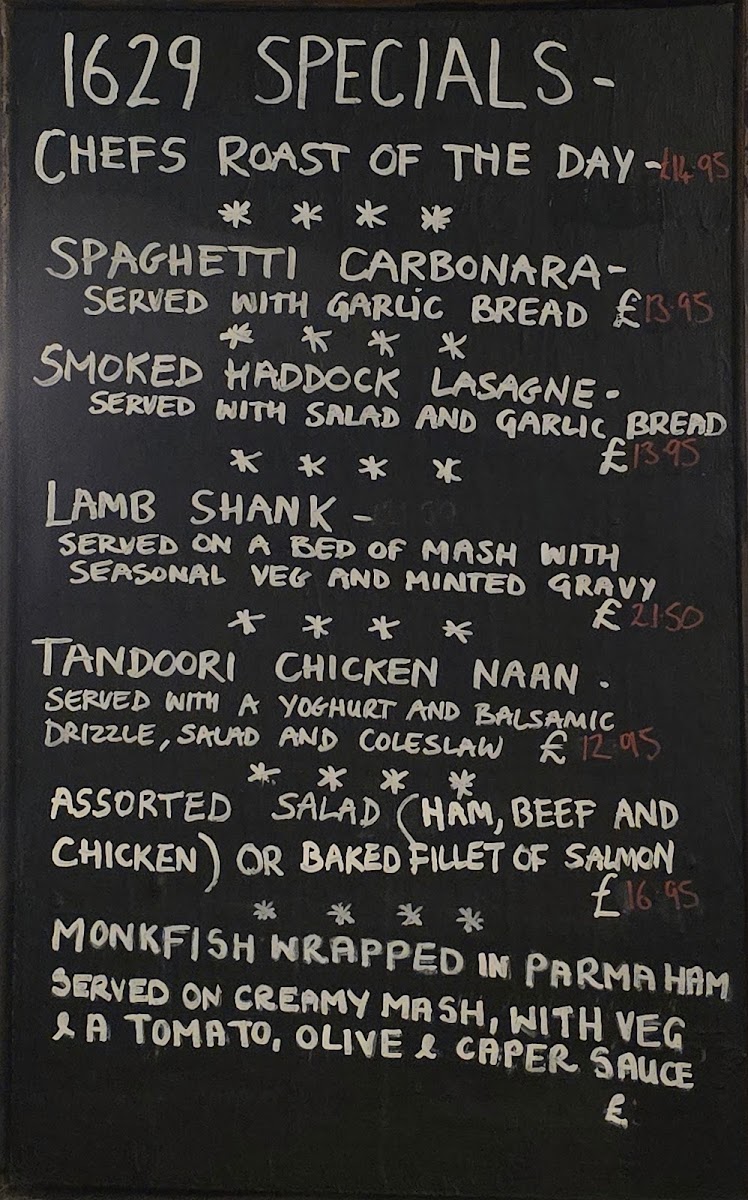 1629 SPECIALS-
CHEFS ROAST OF THE DAY -£14.95
* * * *
SPAGHETTI CARBONARA-
SERVED WITH GARLIC BREAD £13.95
* * * *
SMOKED HADDOCK LASAGNE-
SERVED WITH SALAD AND GARLIC BREAD
£13.95
* * * *
LAMB SHANK -
SERVED ON A BED OF MASH WITH
SEASONAL VEG AND MINTED GRAVY
£21.50
* * * *
TANDOORI CHICKEN NAAN.
SERVED WITH A YOGHURT AND BALSAMIC
DRIZZLE, SALAD AND COLESLAW £12.95
* * * *
ASSORTED SALAD (HAM, BEEF AND
CHICKEN) OR BAKED FILLET OF SALMON
£16.95
* * * *
MONKFISH WRAPPED IN PARMA HAM
SERVED ON CREAMY MASH, WITH VEG
& A TOMATO, OLIVE & CAPER SAUCE
£